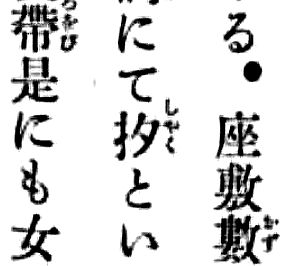 る●座敷數
にて と い
帶是にも女